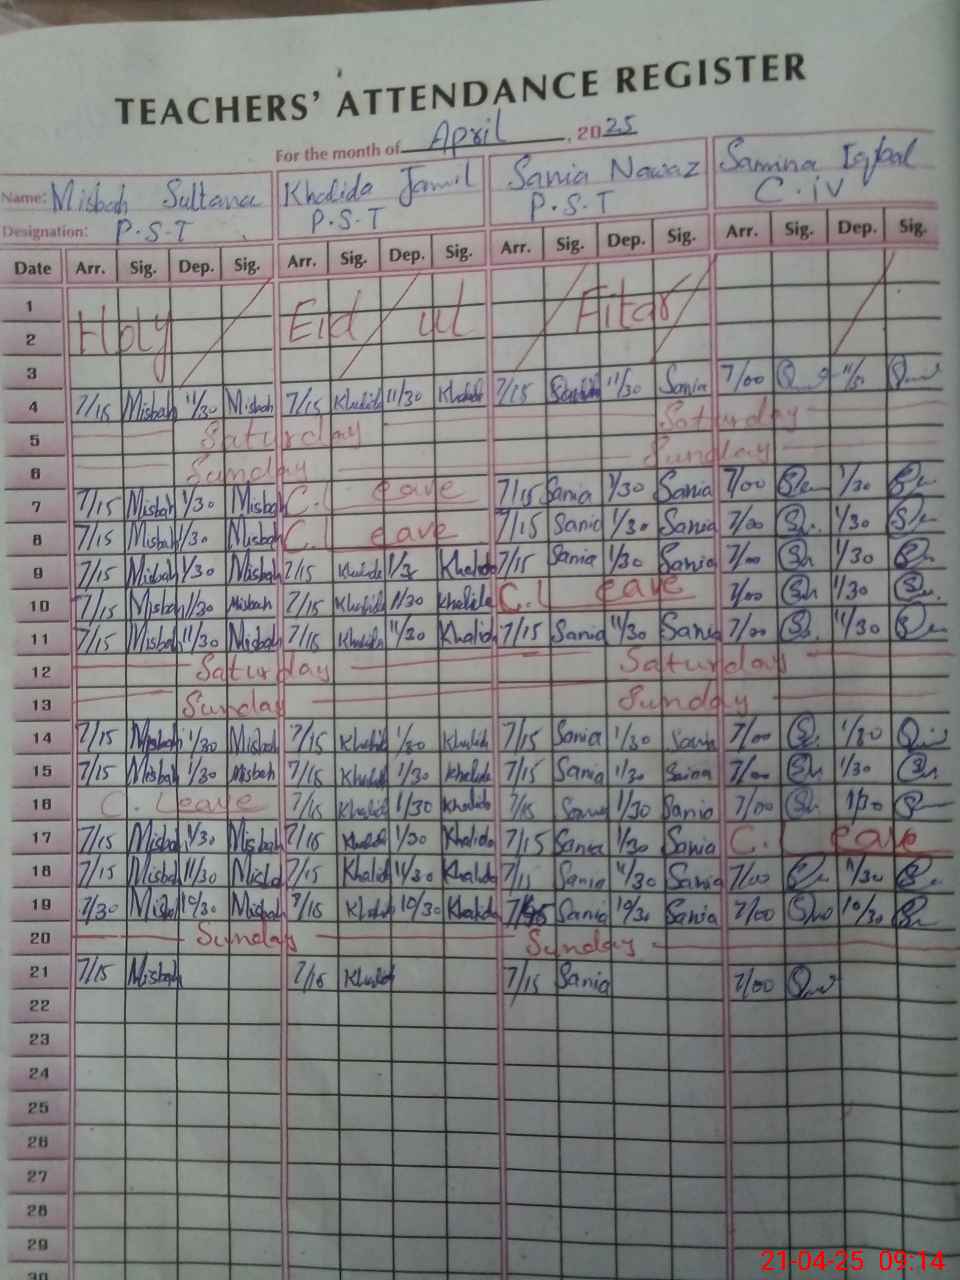 TEACHERS' ATTENDANCE REGISTER
For the month of April, 2025
Name: Misbah Sultana Khalida Jamil Sania Nawaz Samina Iqbal
Designation: P.S.T P.S.T P.S.T C.iv
Date Arr. Sig. Dep. Sig. Arr. Sig. Dep. Sig. Arr. Sig. Dep. Sig. Arr. Sig. Dep. Sig.
1
Holy Eid ul Fitar
2
3
4 7/15 Misbah 11/30 Misbah 7/15 Khalida 11/30 Khalida 7/15 Sania 11/30 Sania 7/00 11/30
5 Saturday Saturday
6 Sunday Sunday
7 7/15 Misbah 1/30 Misbah C. Leave 7/15 Sania 1/30 Sania 7/00 1/30
8 7/15 Misbah 1/30 Misbah C. Leave 7/15 Sania 1/30 Sania 7/00 1/30
9 7/15 Misbah 1/30 Misbah 7/15 Khalida 1/3 Khalida 7/15 Sania 1/30 Sania 7/00 1/30
10 7/15 Misbah 1/30 Misbah 7/15 Khalida 1/30 Khalida C. Leave 7/00 1/30
11 7/15 Misbah 11/30 Misbah 7/15 Khalida 11/30 Khalida 7/15 Sania 11/30 Sania 7/00 11/30
12 Saturday Saturday
13 Sunday Sunday
14 7/15 Misbah 1/30 Misbah 7/15 Khalida 1/30 Khalida 7/15 Sania 1/30 Sania 7/00 1/30
15 7/15 Misbah 1/30 Misbah 7/15 Khalida 1/30 Khalida 7/15 Sania 1/30 Sania 7/00 1/30
16 C. Leave 7/15 Khalida 1/30 Khalida 7/15 Sania 1/30 Sania 7/00 1/30
17 7/15 Misbah 1/30 Misbah 7/15 Khalida 1/30 Khalida 7/15 Sania 1/30 Sania C. Leave
18 7/15 Misbah 11/30 Misbah 7/15 Khalida 11/30 Khalida 7/15 Sania 11/30 Sania 7/00 11/30
19 7/30 Misbah 10/30 Misbah 7/15 Khalida 10/30 Khalida Sania 10/30 Sania 7/00 10/30
20 Sunday Sunday
21 7/15 Misbah 7/15 Khalida 7/15 Sania 7/00
22
23
24
25
26
27
28
29
30
21-04-25 09:14